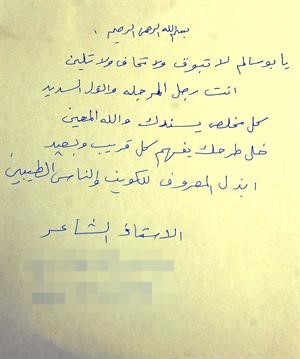 بسم الله الرحمن الرحيم ،
يا بوسالم لا تبوق ولا تخاف ولا تلين
انت رجل المرحله والقول السديد
كل مخلص يسندك والله المعين
خل طرحك يفهم كل قريب وبعيد
ابذل المعروف للكويت والناس الطيبين
الاستاذ الشاعر